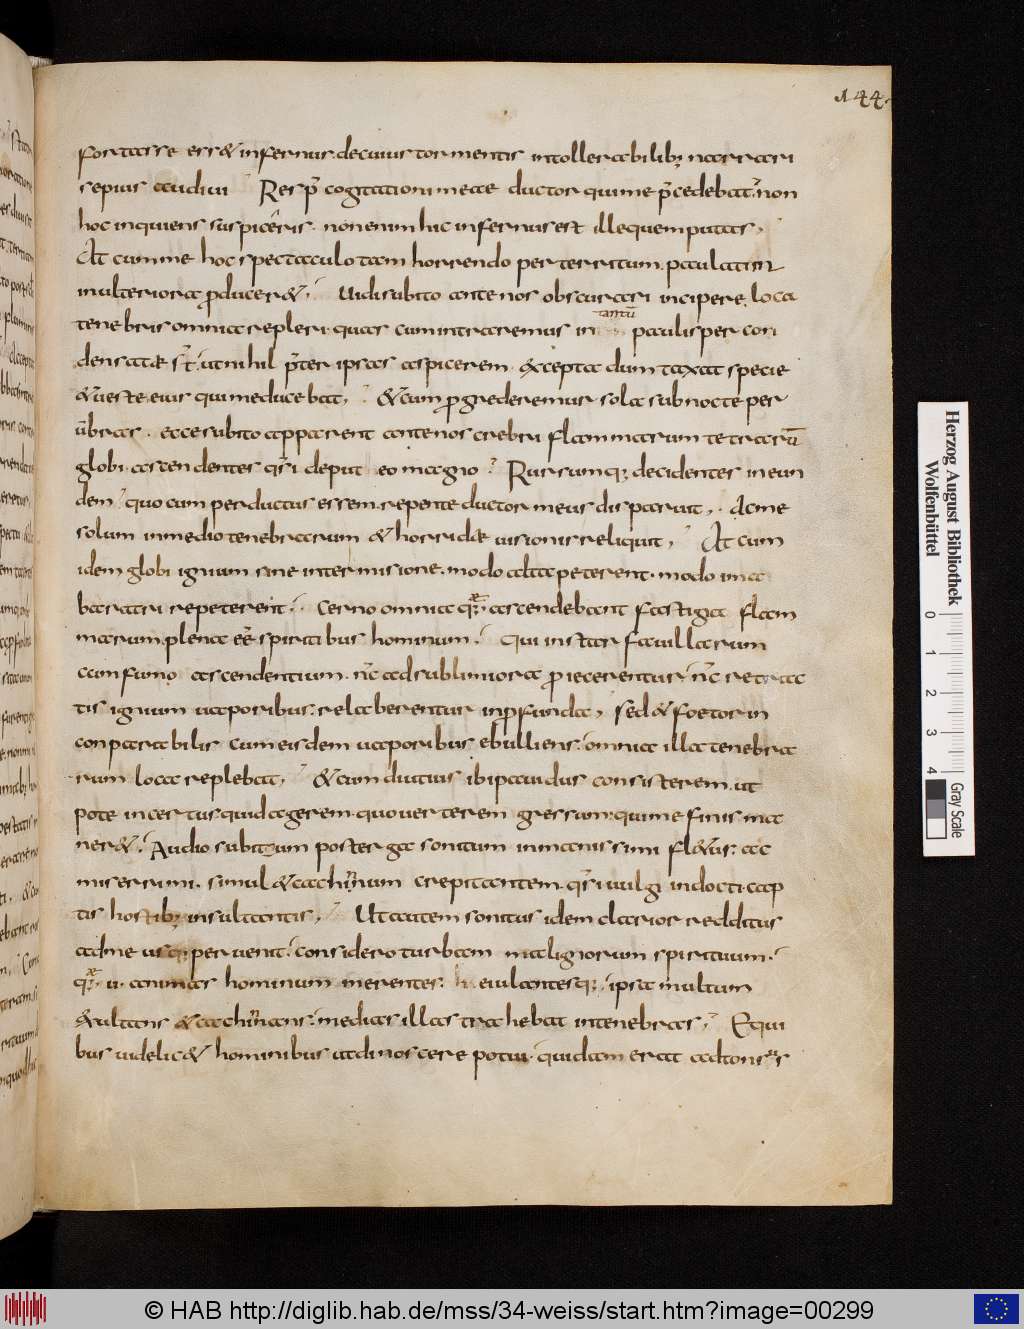 144.
fortasse ess& infernus. de cuius tormentis intollerabilib; narrari
sepius audiui Resp̄ cogitationi meae ductor qui me p̄cedebat. non
hoc inquiens suspicéris. non enim hic infernus est ille quem putas,
At cum me hoc spectaculo tam horrendo perterritum. paulatim
in ulteriora ꝓducer&, Uidi subito ante nos obscurari incipere loca
tenebris omnia repleri. quas cum intraremus in tantū paulisper con
densatae st̄. ut nihil p̄ter ipsas aspicerem. excepta dum taxat specie
& ueste eius qui me ducebat, & cum ꝓgrederemur sola sub nocte per
ūbras. ecce subito apparent ante nos crebri flammarum tetrarū
globi. ascendentes qs̄i de put eo magno Rursumq; decidentes in eun
dem quo cum perductus essem. repente ductor meus disparuit, Ac me
solum in medio tenebrarum & horridae uisionis reliquit, At cum
idem globi ignium sine intermisione. modo alta peterent. modo ima
baratri repeterent. Cerno omnia q; ascendebant fastigia flam
marum. plena eē spiritibus hominum. Qui instar fauillarum
cum fumo ascendentium. nc̄ ad sublimiora ꝓiecerentur nc̄ retrac
tis ignium uaporibus. relaberentur in ꝓfunda, sed & foetor in
conparabilis cum eisdem uaporibus ebulliens. omnia illa tenebra
rum loca replebat, & cum diutius ibi pauidus consisterem. ut
pote incertus quid agerem. quo uerterem gressum. qui me finis ma
ner&. Audio subitum post terga sonitum inmanissimi fl&us. ac
miserrimi. simul & cachinnum crepitantem. qs̄i uulgi indocti. cap
tis hostib; insultantis, Ut autem sonitus idem clarior redditus
ad me usq; peruenit. considero turbam malignorum spirituum.
q; .u. animas hominum merentes. heiulantesq; ipsa multum
exultans & cachinnans. medias illas trahebat in tenebras, E qui
bus uidelic& hominibus ut dinoscere potui. quidam erat adtonsus
Herzog August Bibliothek
Wolfenbüttel
0 1 2 3 4
Gray Scale
© HAB http://diglib.hab.de/mss/34-weiss/start.htm?image=00299